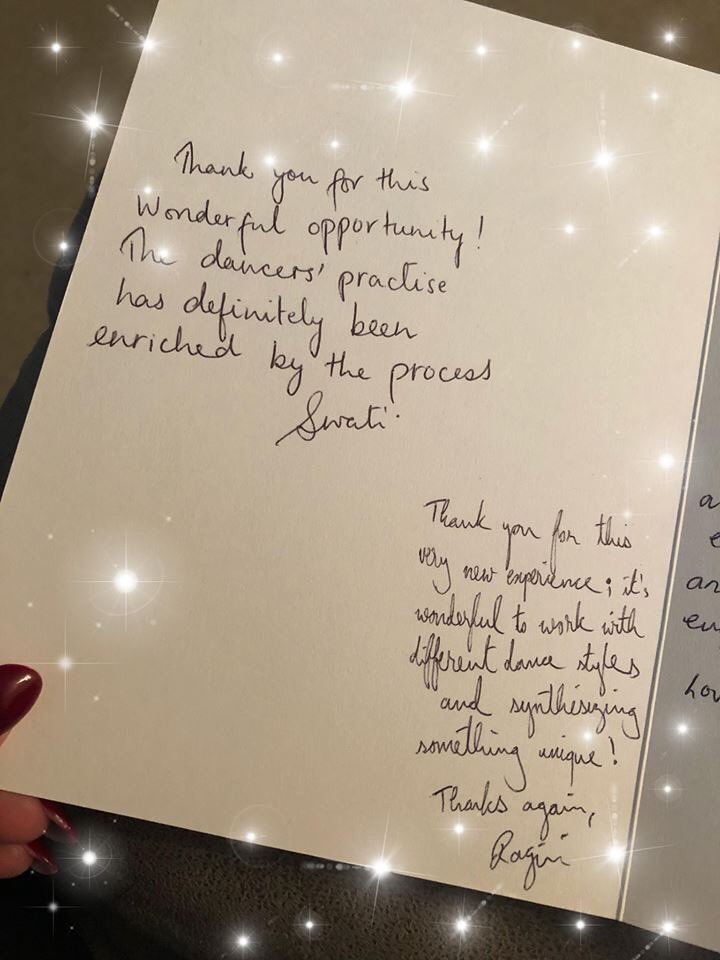 Thank you for this
Wonderful opportunity!
The dancers' practise
has definitely been
enriched by the process
Swati
Thank you for this
very new experience; it's
wonderful to work with
different dance styles
and synthesizing
something unique!
Thanks again,
Ragini